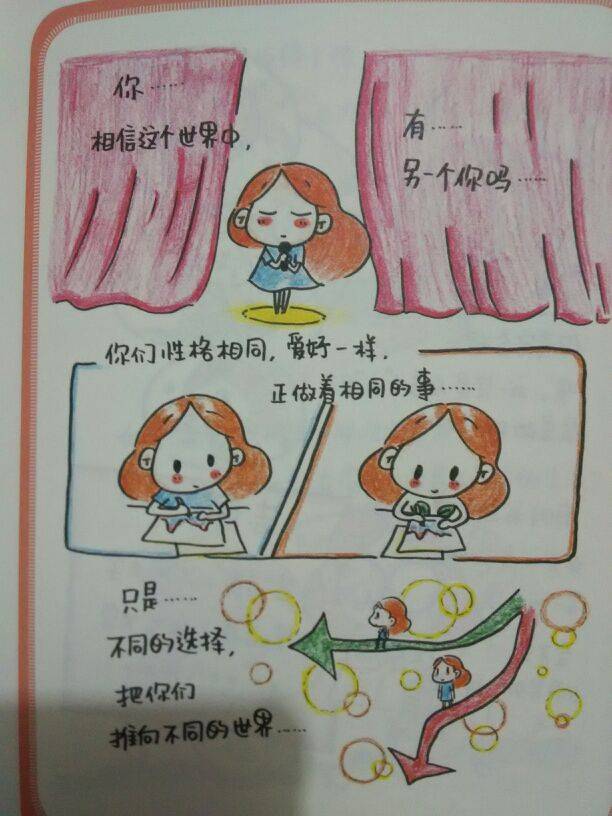 你……
相信这个世界中，
有……
另一个你吗……
你们性格相同，爱好一样，
正做着相同的事……
只是……
不同的选择，
把你们
推向不同的世界……